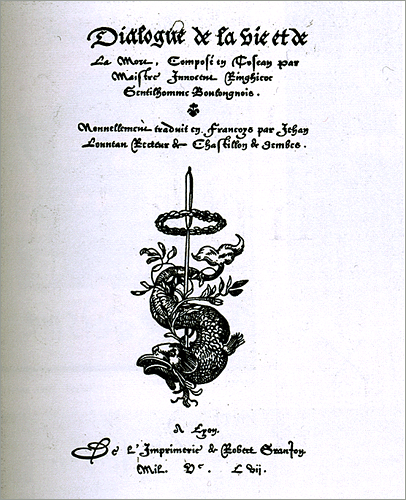 Dialogue de la vie et de
La Mort, Composé en Toscan par
Maistre Innocent Ringhiere
Gentilhomme Boulongnois.
Nouvellement traduit en Francoys par Jehan
Louveau Recteur de Chastillon de Dombes.
A Lyon.
De L'Imprimerie de Robert Granjon
Mil. Vc. L vij.